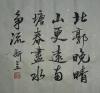 北郭晚晴
山更远南
塘春尽水
争流